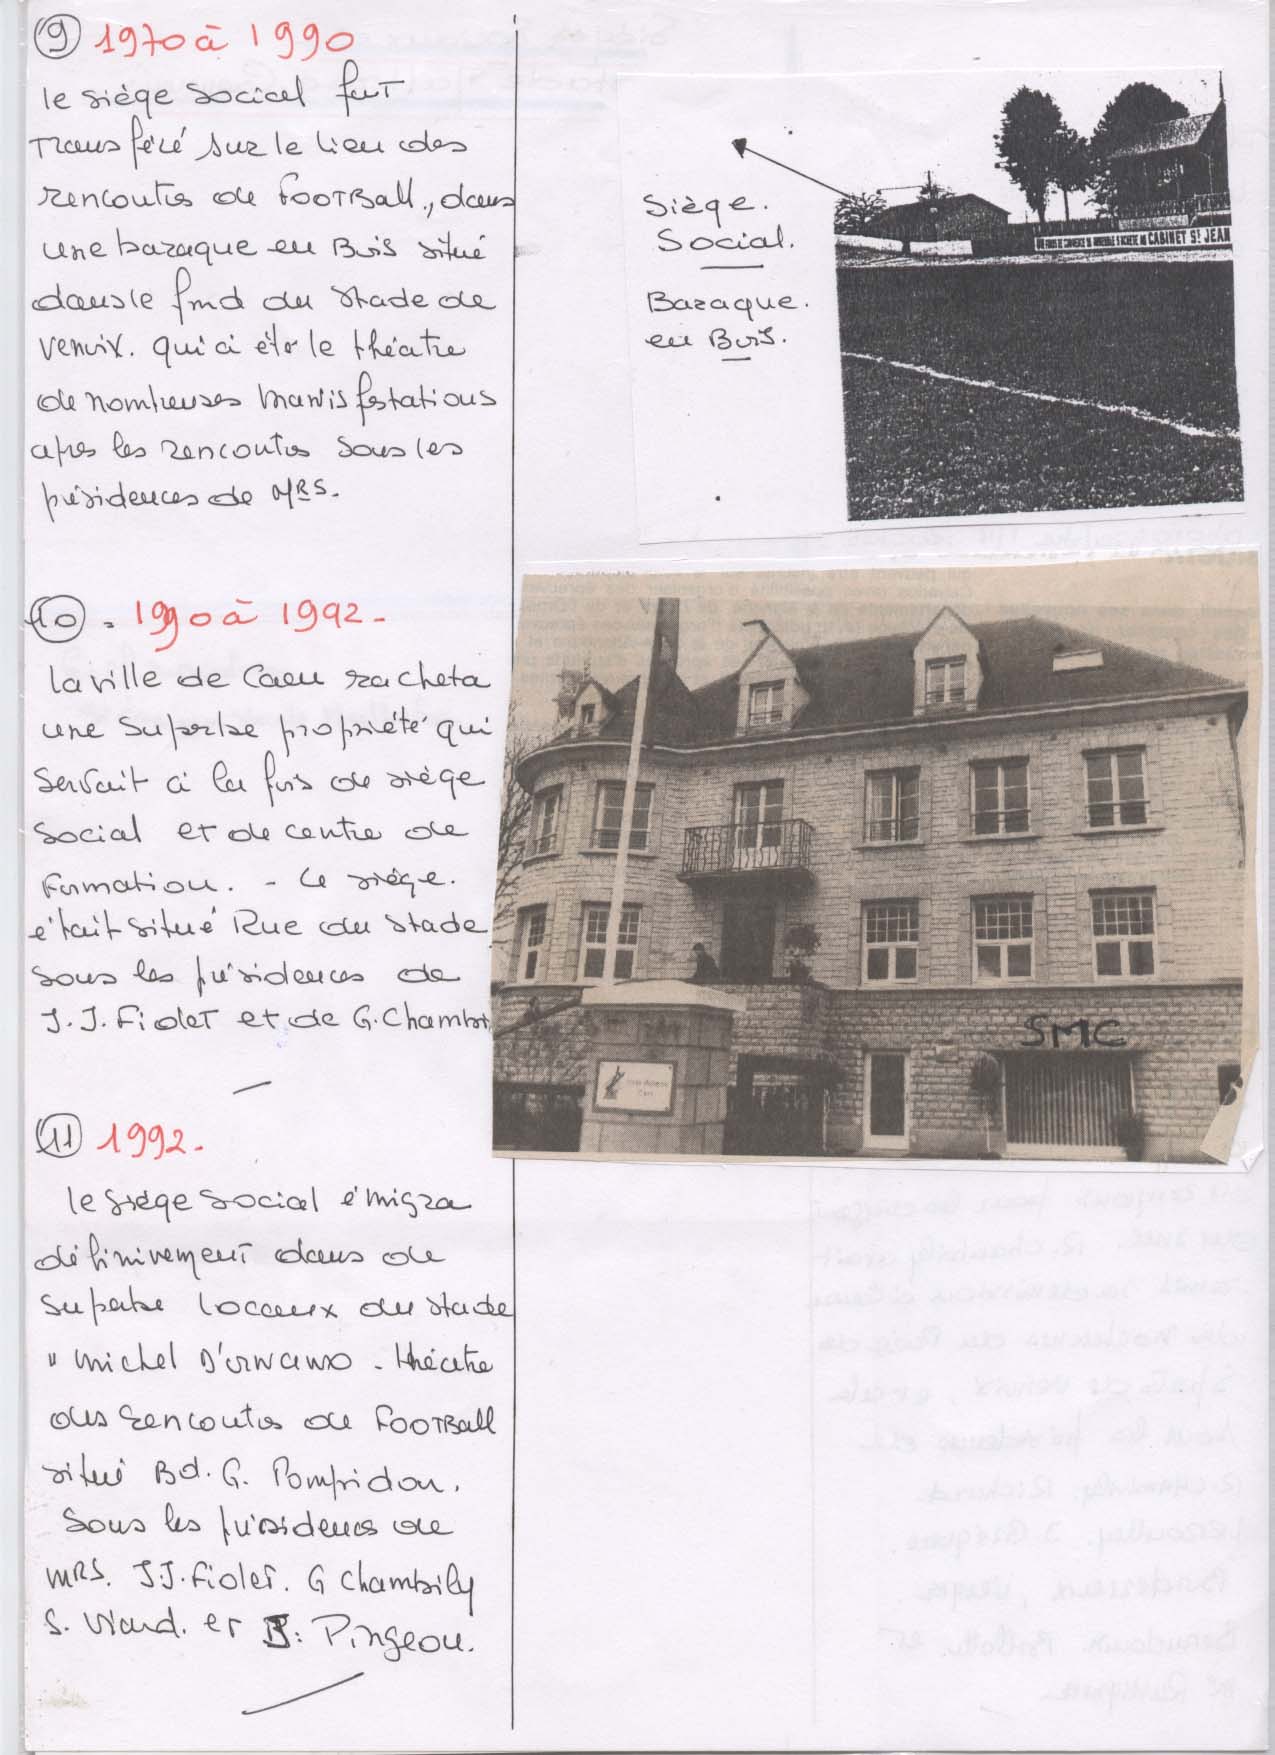 9 1970 à 1990
le siège social fut
Transféré sur le lieu des
rencontres de FOOTBall, dans
une baraque en Bois situé
dans le fond du stade de
Venoix. qui a été le théatre
de nombreuses manisfestations
après les rencontres sous les
présidences de MRS.
Siège.
Social.
Baraque.
en Bois.
CABINET St JEAN
10 - 1990 à 1992 -
la ville de Caen racheta
une superbe propriété qui
servait à la fois de siège
social et de centre de
Formation. - Le siège.
était situé Rue du stade
sous les présidences de
J.J. Fiolet et de G. Chambi
SMC
11 1992 -
le siège social émigra
définivement dans de
superbe locaux du stade
" Michel D'ornano - théatre
des rencontres de FOOTBall
situé Bd. G. Pompidou.
Sous les présidences de
MRS. J.J. Fiolet. G Chambily
S. Viard. et B: Pingeon.